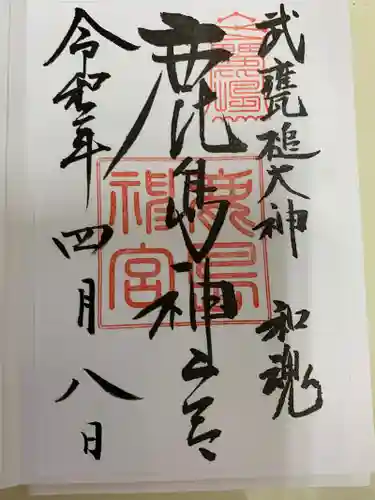 武甕槌大神 和魂
鹿島神宮
令和年 四月八日
鹿島
神宮